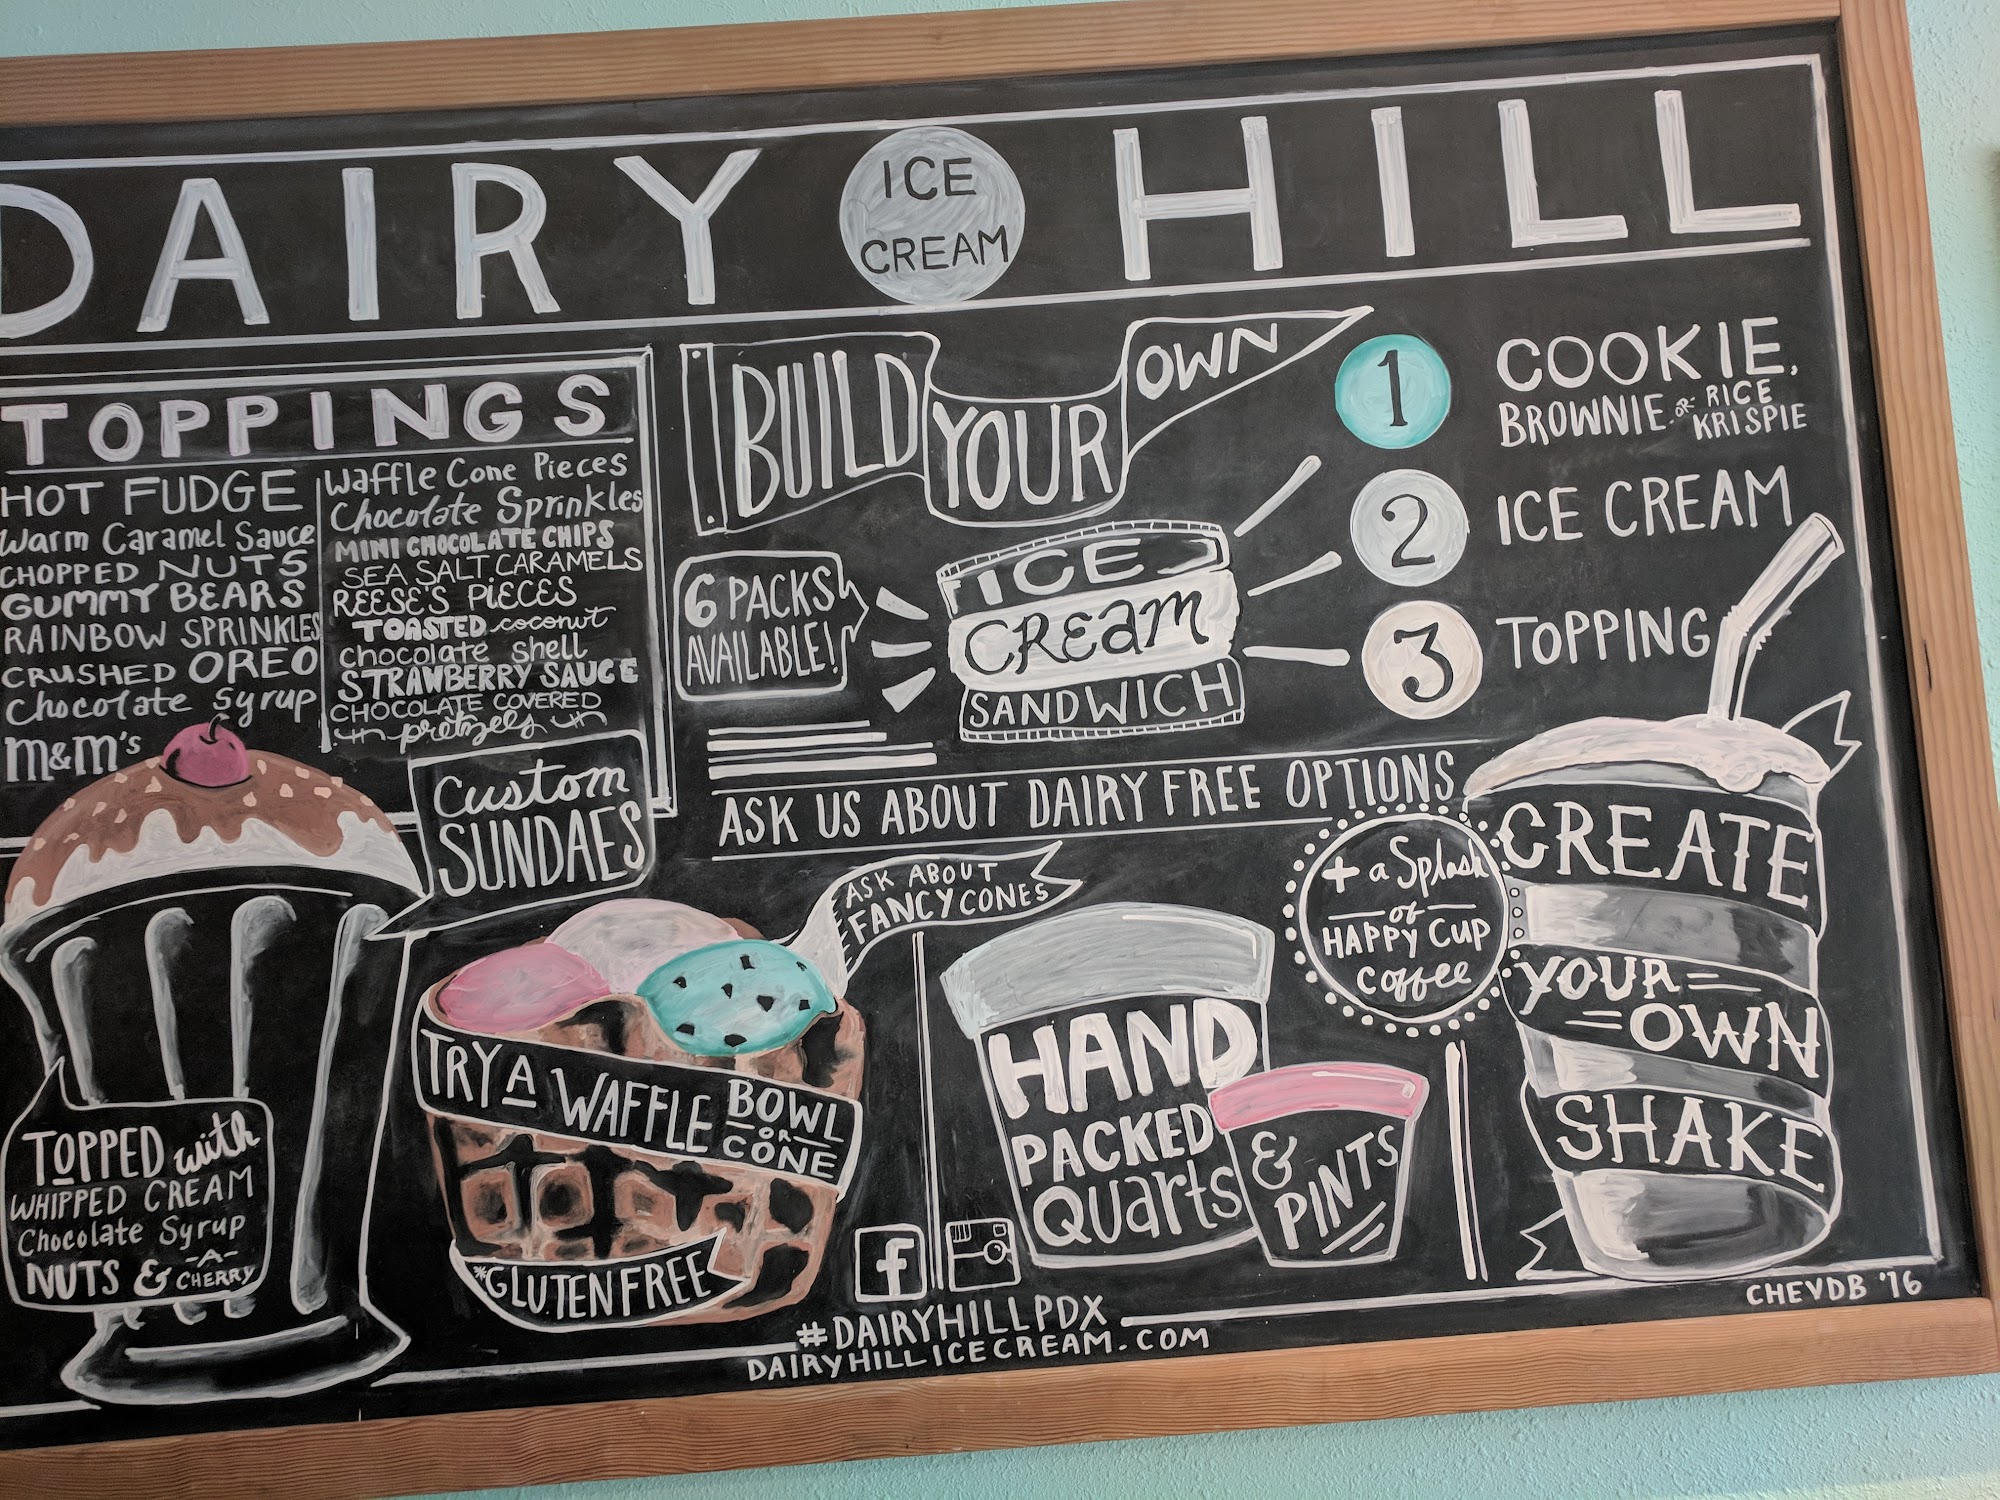 DAIRY ICE CREAM HILL
TOPPINGS
HOT FUDGE
Warm Caramel Sauce
CHOPPED NUTS
GUMMY BEARS
RAINBOW SPRINKLES
CRUSHED OREO
Chocolate Syrup
m&m's
Waffle Cone Pieces
Chocolate Sprinkles
MINI CHOCOLATE CHIPS
SEA SALT CARAMELS
REESE'S PIECES
TOASTED coconut
chocolate shell
STRAWBERRY SAUCE
CHOCOLATE COVERED
pretzels
Custom
SUNDAES
TOPPED with
WHIPPED CREAM
Chocolate Syrup
NUTS & -A- CHERRY
BUILD YOUR OWN
6 PACKS
AVAILABLE!
ICE
CREAM
SANDWICH
1 COOKIE,
BROWNIE OR RICE KRISPIE
2 ICE CREAM
3 TOPPING
ASK US ABOUT DAIRY FREE OPTIONS
ASK ABOUT
FANCY CONES
TRY A WAFFLE BOWL OR CONE
*GLUTEN FREE
HAND
PACKED
Quarts
&
PINTS
+ a Splash
of
HAPPY CUP
coffee
CREATE
YOUR
OWN
SHAKE
f
#DAIRYHILLPDX
DAIRYHILLICECREAM.COM
CHEVDB '16